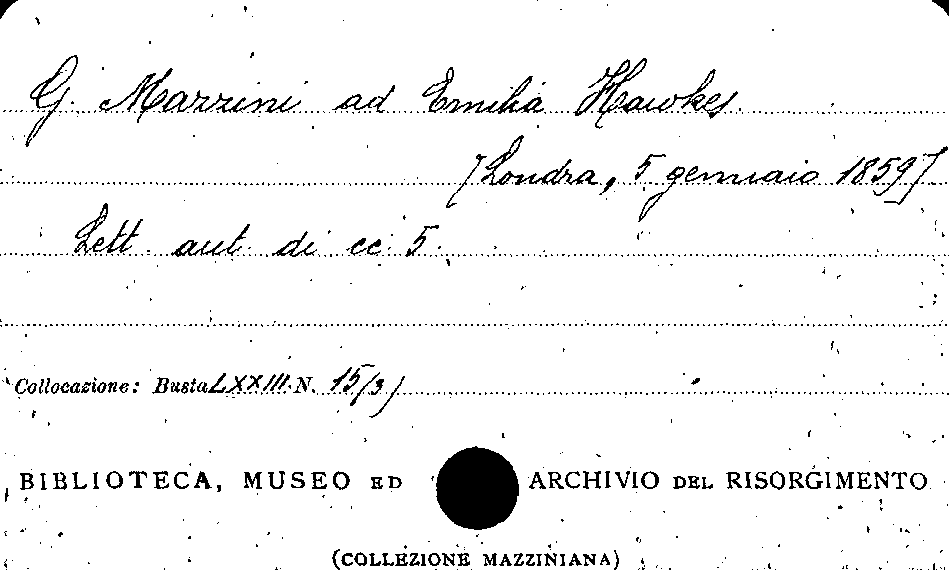 G. Mazzini ad Emilia Hawkes.
[Londra, 5 gennaio 1859]
Lett. aut. di cc. 5.
Collocazione: Busta LXXIII. N. 15/3)
BIBLIOTECA, MUSEO ED ARCHIVIO DEL RISORGIMENTO
(COLLEZIONE MAZZINIANA)